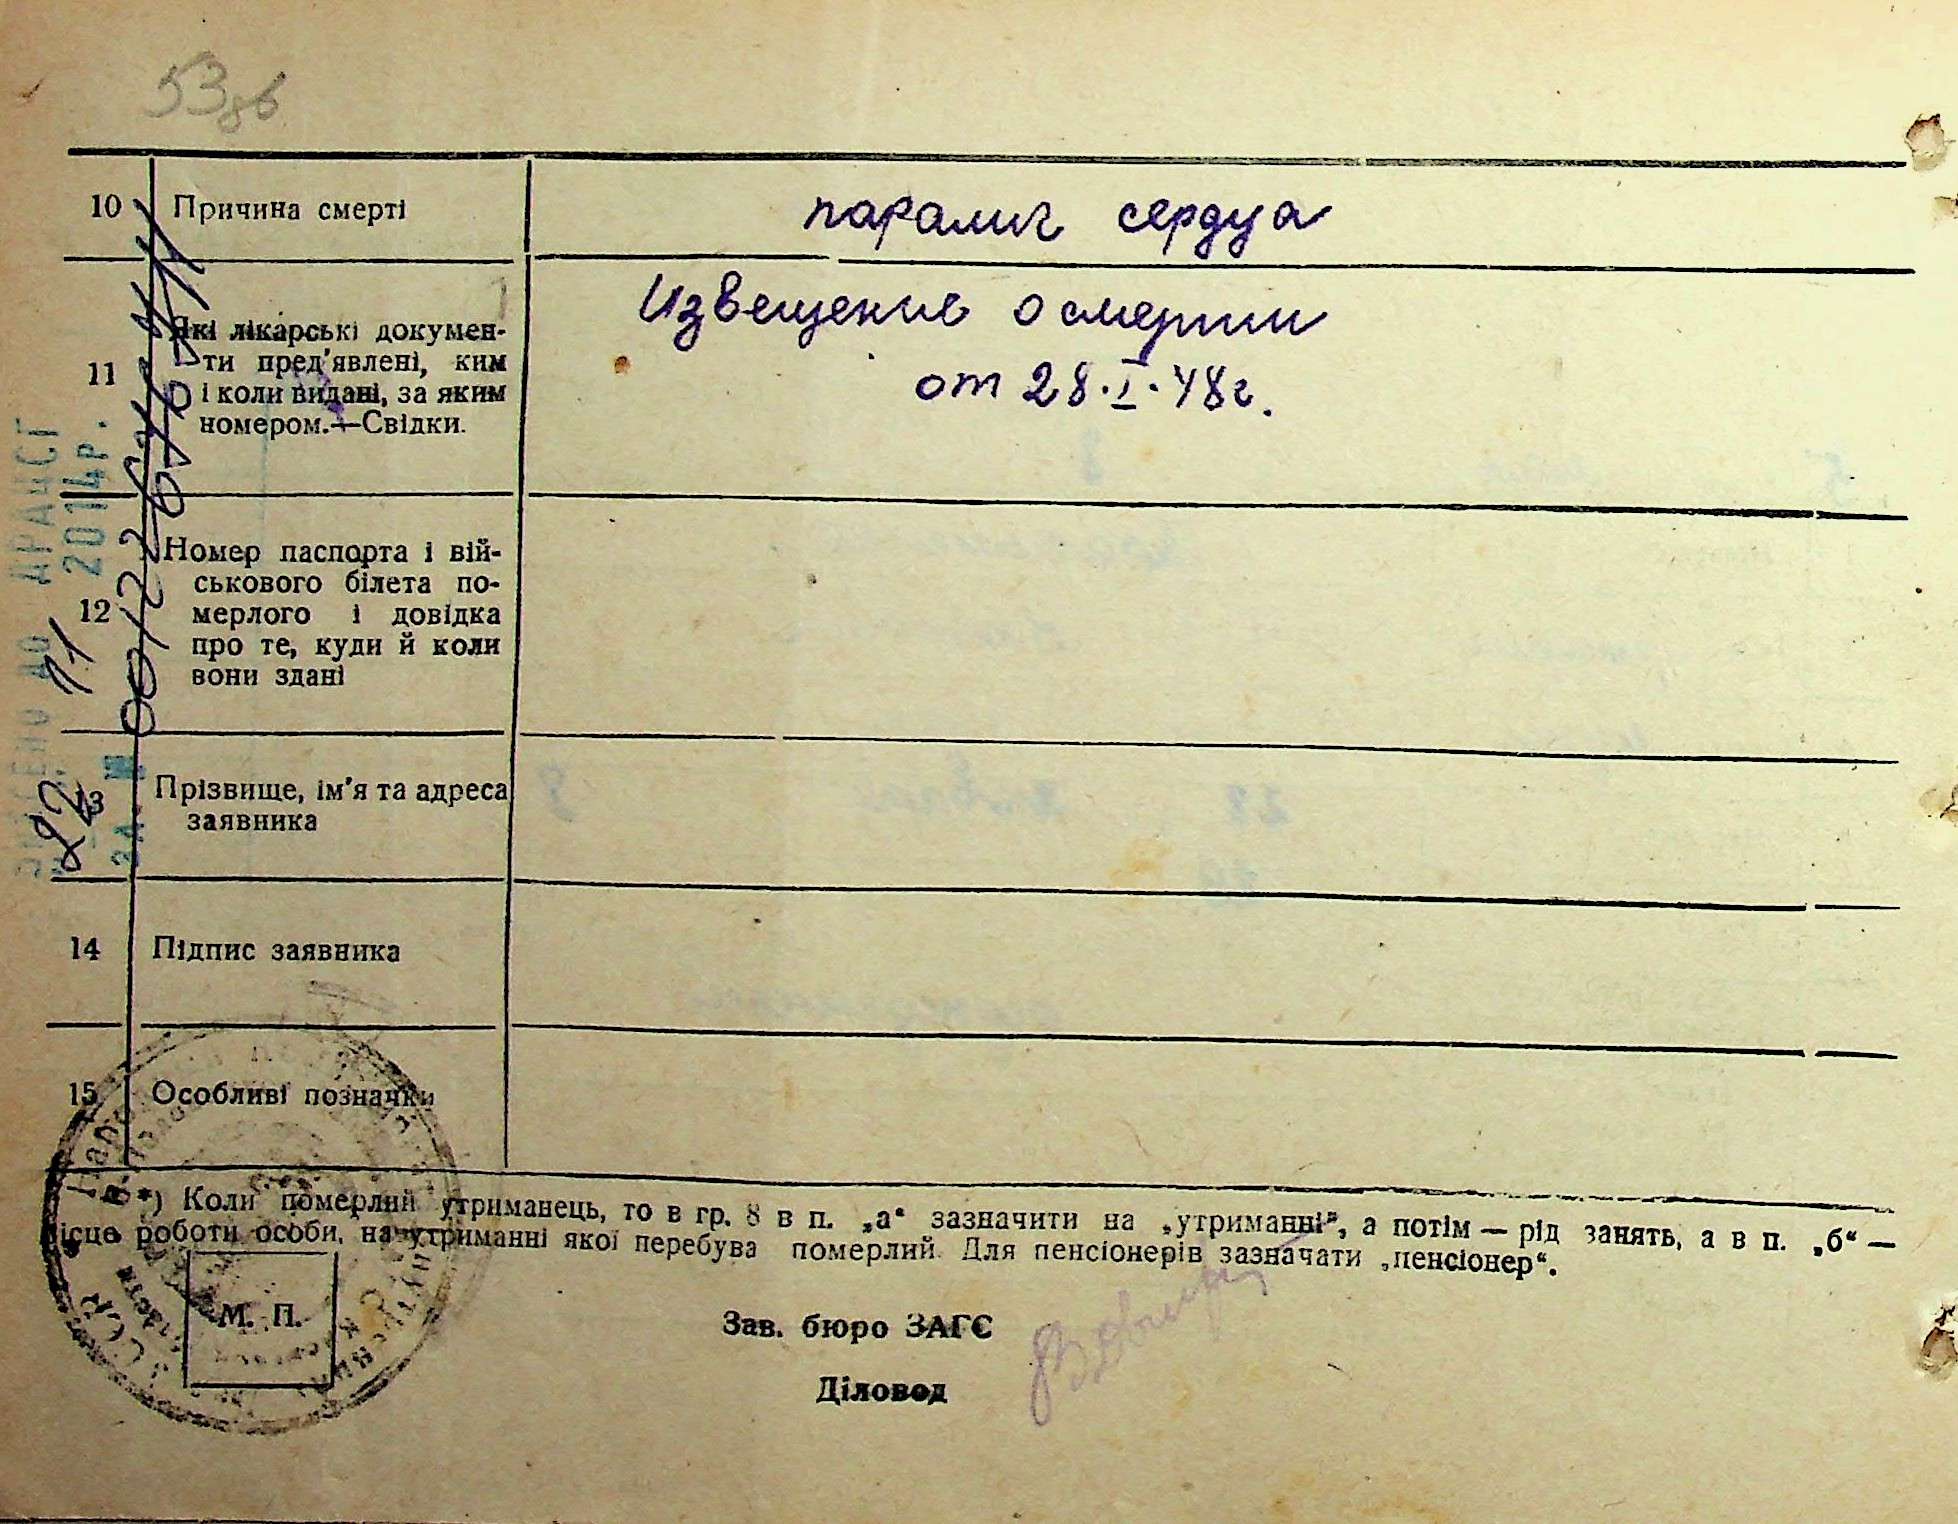 53зв
10 Причина смерті паралич сердца
11 Які лікарські докумен-
ти пред'явлені, ким
і коли видані, за яким
номером.—Свідки.
Извещение о смерти
от 28.I.48г.
12 Номер паспорта і вій-
ськового білета по-
мерлого і довідка
про те, куди й коли
вони здані
13 Прізвище, ім'я та адреса
заявника
14 Підпис заявника
15 Особливі позначки
*) Коли померлий утриманець, то в гр. 8 в п. „а“ зазначити на „утриманні“, а потім — рід занять, а в п. „б“ —
місце роботи особи, на утриманні якої перебува померлий. Для пенсіонерів зазначати „пенсіонер“.
М. П.
Зав. бюро ЗАГС
Діловод
ДО ДРАЦСГ
22 11 2014р.
ЗА №